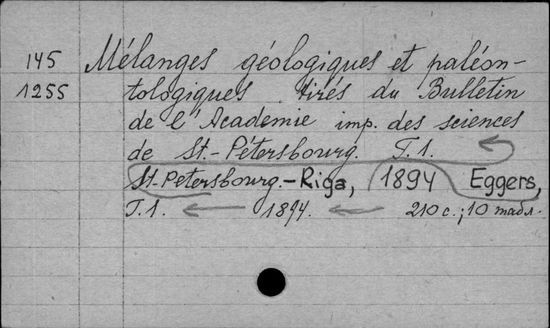 145 Mélanges géologiques et paléon-
1255 tologiques tirés du Bulletin
de l'Academie imp. des sciences
de St.-Pétersbourg. T.1.
St.Petersbourg.-Riga, 1894 Eggers,
T.1. 1894. 210 с.; 10 табл.